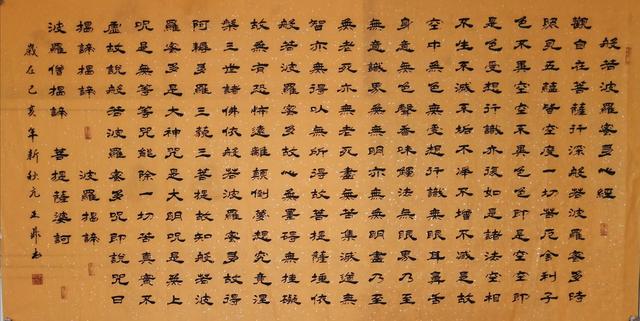 般若波羅蜜多心經
觀自在菩薩行深般若波羅蜜多時
照見五蘊皆空度一切苦厄舍利子
色不異空空不異色色即是空空即
是色受想行識亦復如是諸法空相
不生不滅不垢不淨不增不減是故
空中無色無受想行識無眼耳鼻舌
身意無色聲香味觸法無眼界乃至
無意識界無無明亦無無明盡乃至
無老死亦無老死盡無苦集滅道無
智亦無得以無所得故菩提薩埵依
般若波羅蜜多故心無罣礙無罣礙
故無有恐怖遠離顛倒夢想究竟涅
槃三世諸佛依般若波羅蜜多故得
阿耨多羅三藐三菩提故知般若波
羅蜜多是大神咒是大明咒是無上
咒是無等等咒能除一切苦真實不
虛故說般若波羅蜜多咒即說咒曰
揭諦揭諦 波羅揭諦
波羅僧揭諦 菩提薩婆訶
歲在己亥年新秋元正